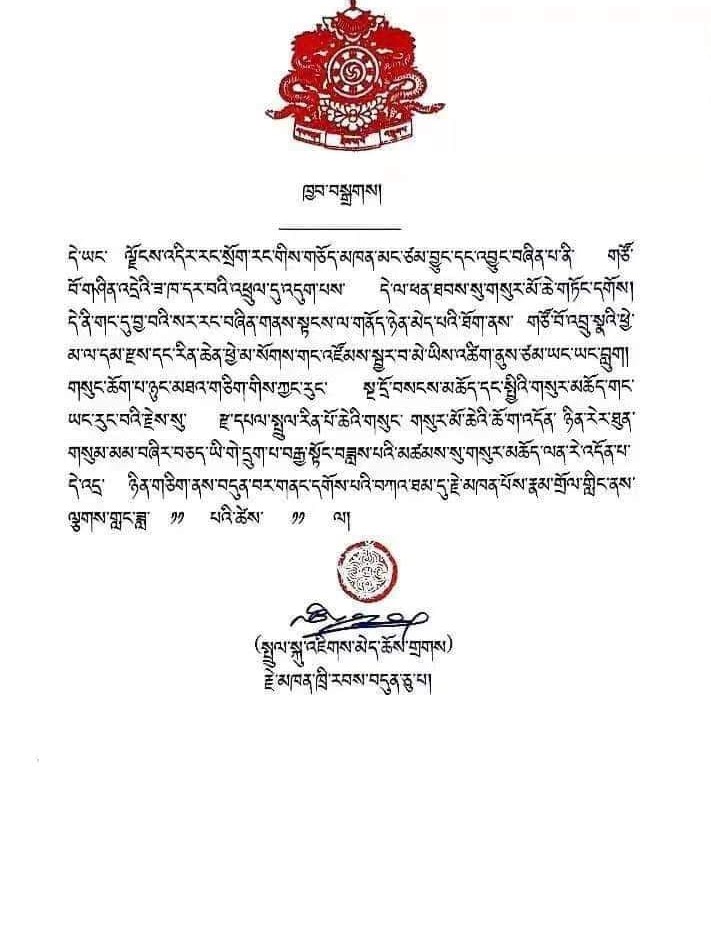 ཁྱབ་བསྒྲགས།
དེ་ཡང་ ལྗོངས་འདིར་རང་སྲོག་རང་གིས་གཅོད་མཁན་མང་ཙམ་བྱུང་དང་འབྱུང་བཞིན་པ་ནི་ གཙོ་
བོ་གཤིན་འདྲེའི་ཟ་ཁ་དར་བའི་འཕྲུལ་དུ་འདུག་པས་ དེ་ལ་ཕན་ཐབས་སུ་གསུར་མོ་ཆེ་གཏོང་དགོས།
དེ་ནི་གང་དུ་བྱ་བའི་སར་རང་བཞིན་གནས་སྟངས་ལ་གནོད་ཉེན་མེད་པའི་ཐོག་ནས་ གཙོ་བོ་འབྲུ་སྣའི་ཕྱེ་
མ་ལ་དམ་རྫས་དང་རིན་ཆེན་ཕྱེ་མ་སོགས་གང་འཛོམས་སྦྱར་བ་མེ་ཡིས་འཚིག་ནུས་ཙམ་ཡང་ཡང་བླུག།
གསུང་ཆོག་པ་ཉུང་མཐའ་གཅིག་གིས་ཀྱང་རུང་ སྔ་དྲོ་བསངས་མཆོད་དང་སྤྱིའི་གསུར་མཆོད་གང་
ཡང་རུང་བའི་རྗེས་སུ་ རྫ་དཔལ་སྤྲུལ་རིན་པོ་ཆེའི་གསུང་ གསུར་མོ་ཆེའི་ཆོ་ག་འདོན་ ཉིན་རེར་ཐུན་
གསུམ་མམ་བཞིར་བཅད་ཡི་གེ་དྲུག་པ་བརྒྱ་སྟོང་བཟླས་པའི་མཚམས་སུ་གསུར་མཆོད་ལན་རེ་འདོན་པ་
དེ་འདྲ་ ཉིན་གཅིག་ནས་བདུན་བར་གནང་དགོས་པའི་བཀའ་ཐམ་དུ་རྗེ་མཁན་པོས་རྣམ་གྲོལ་གླིང་ནས་
ལྕགས་གླང་ཟླ་ ༡༡ པའི་ཚེས་ ༡༡ ལ།
(སྤྲུལ་སྐུ་འཇིགས་མེད་ཆོས་གྲགས)
རྗེ་མཁན་ཁྲི་རབས་བདུན་ཅུ་པ།